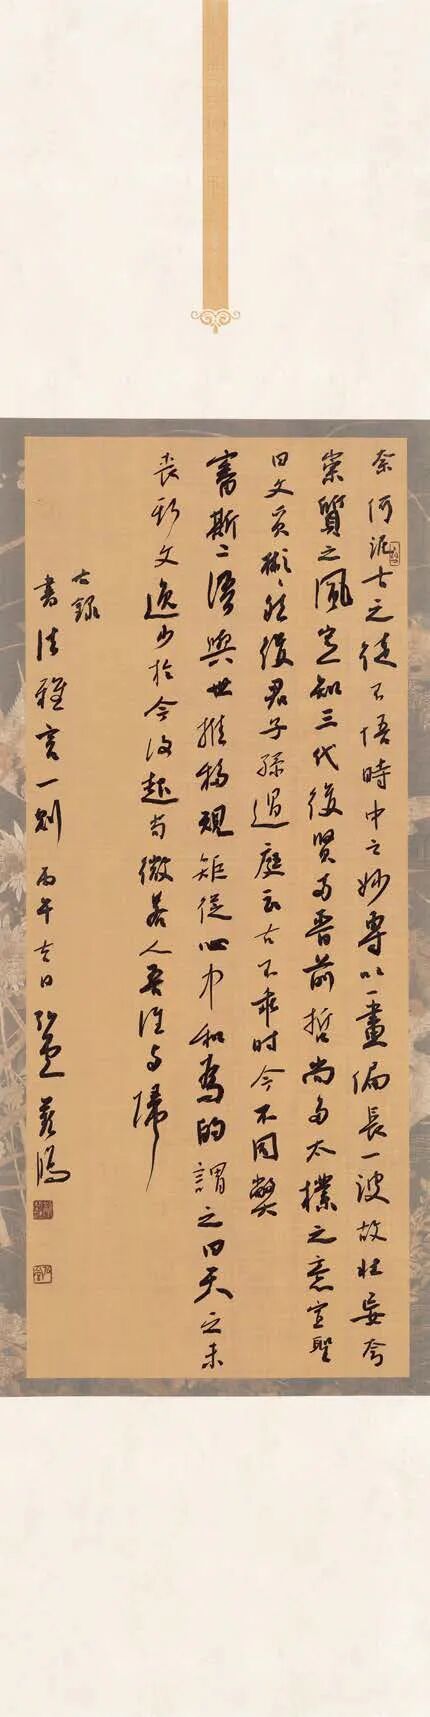 奈何泥古之徒不悟時中之妙專以一畫偏長一波故壯妄夸
崇質之風豈知三代後賢两晉前哲尚多太樸之意宣聖
曰文質彬彬然後君子孫過庭云古不乖时今不同弊
審斯二語與世推移規矩從心中和為的謂之曰天之未
喪斯文逸少於今復起苟微若人吾誰与歸
右錄
書法雅言一則 丙午